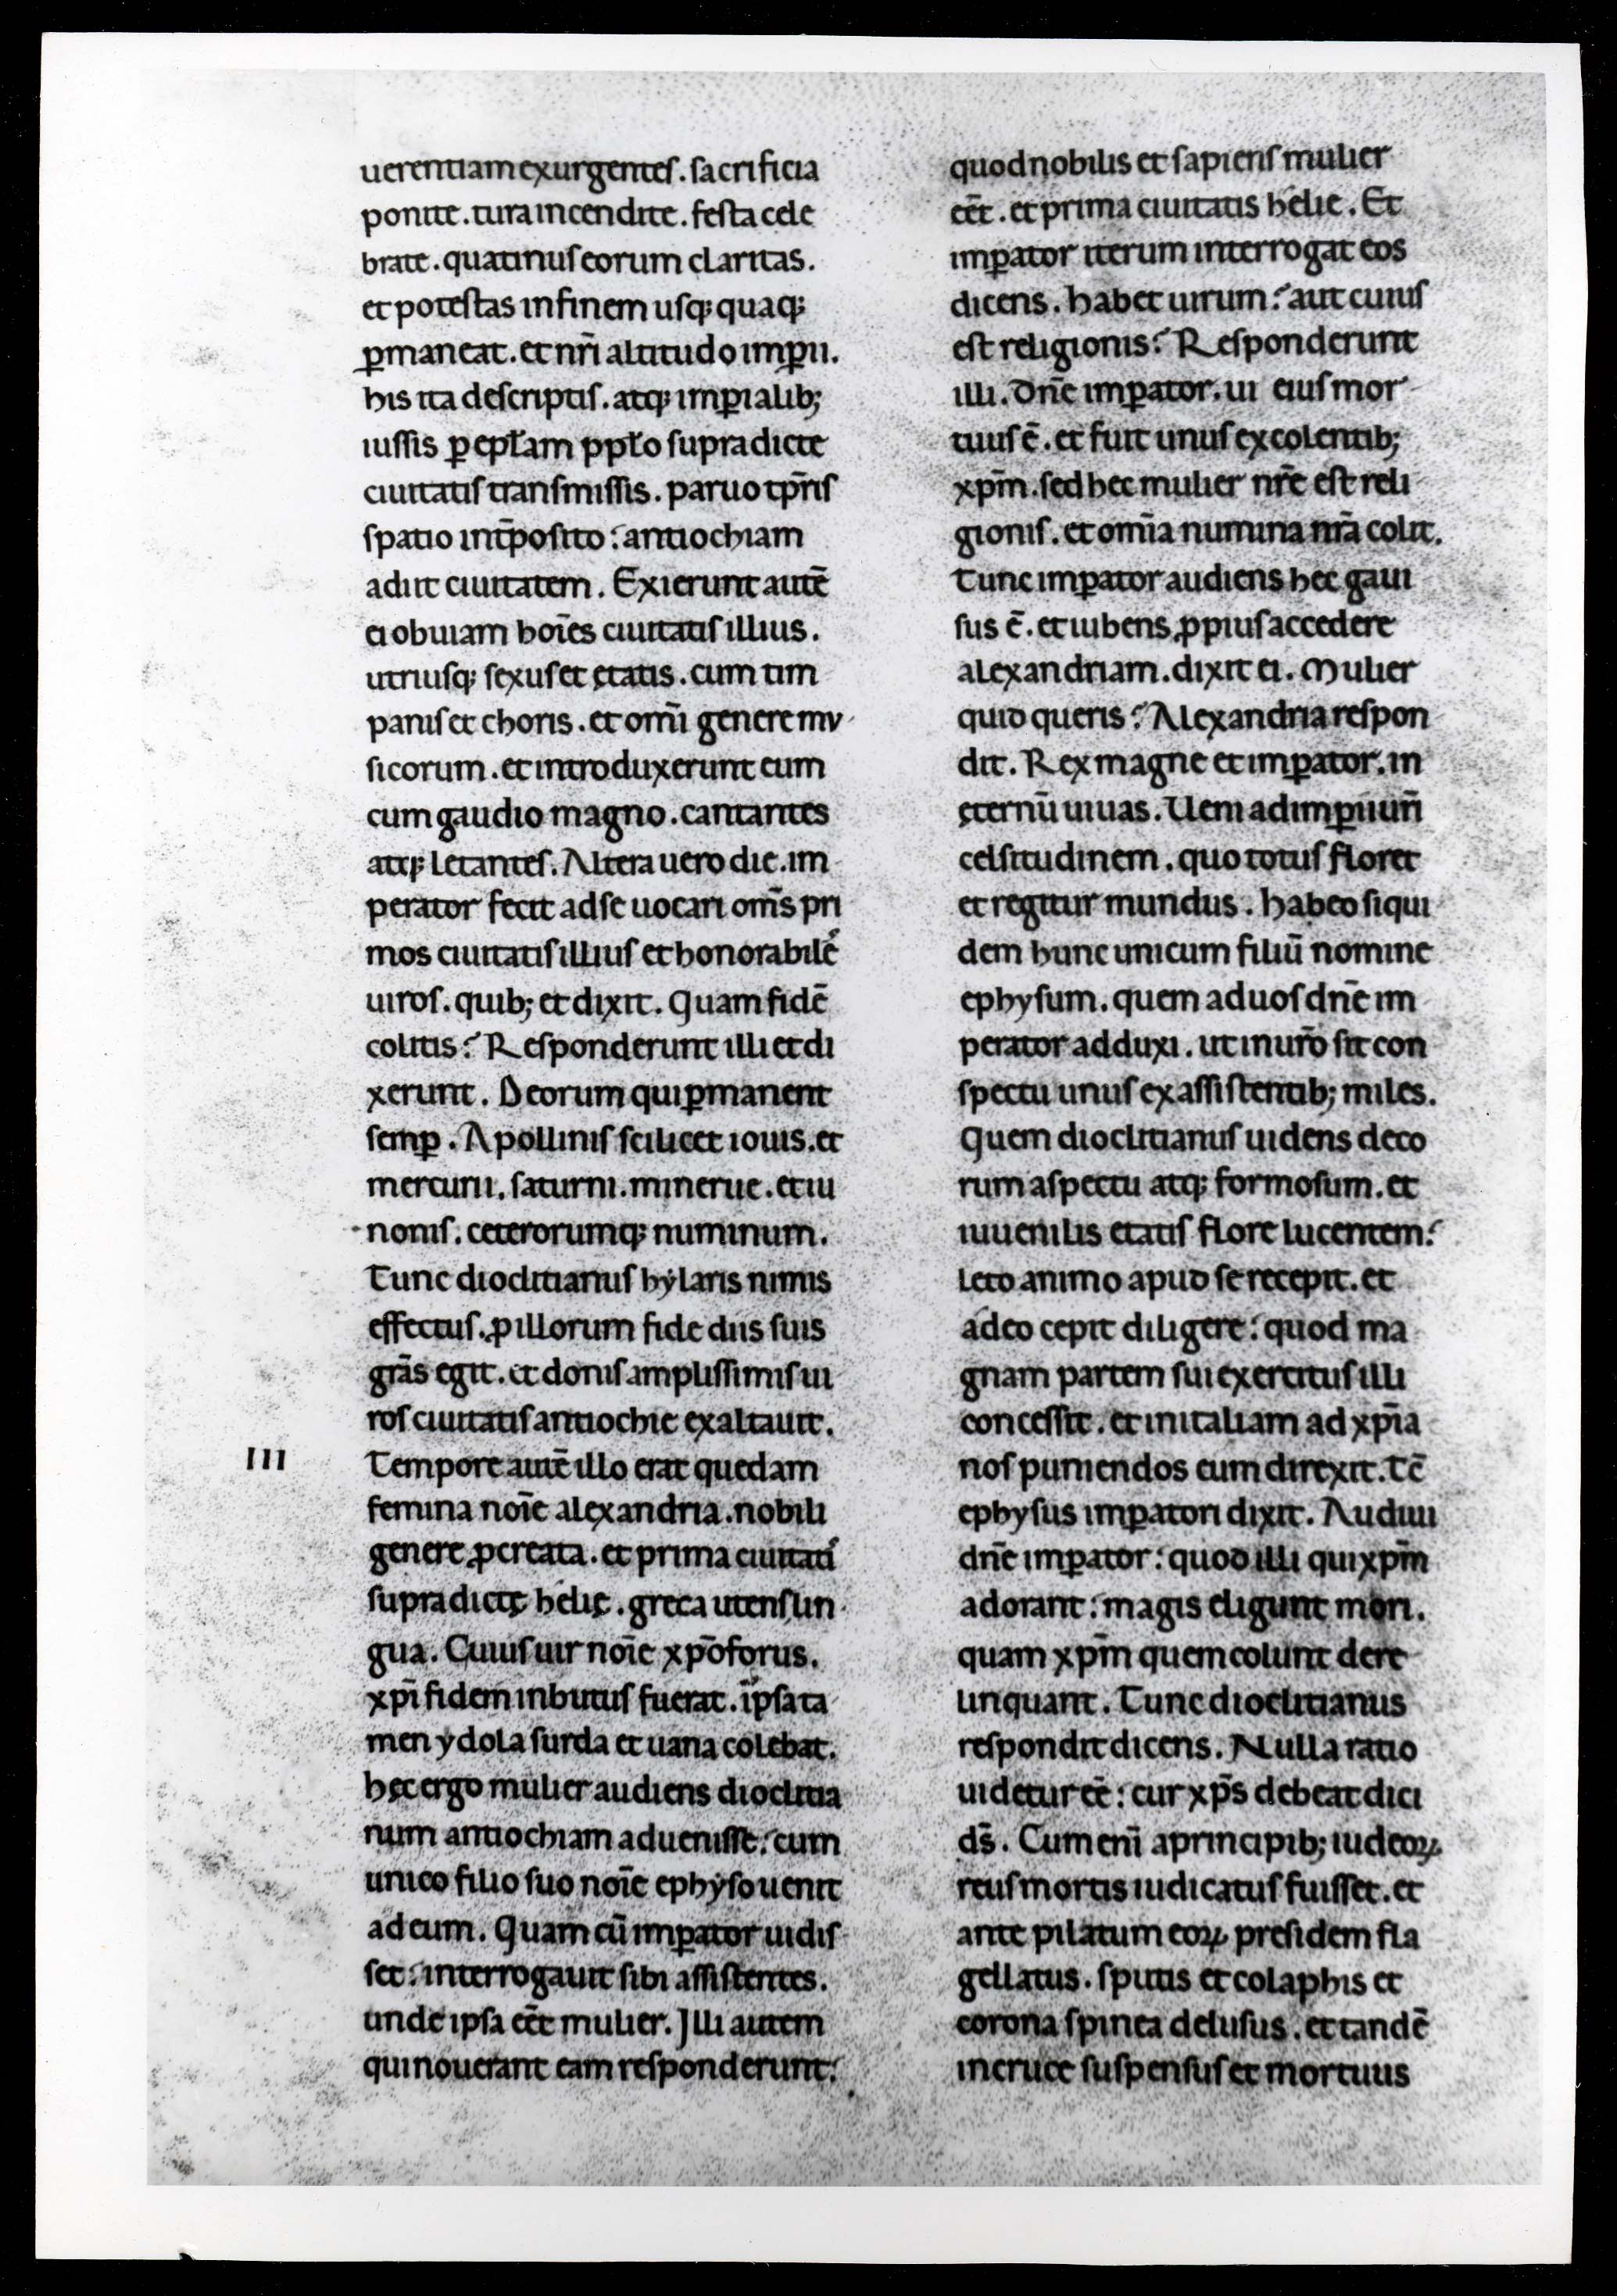 uerentiam exurgentes. sacrificia
ponite. tura incendite. festa cele
brate. quatinus eorum claritas.
et potestas in finem usq; quaq;
ꝑmaneat. et nr̄i altitudo imꝑii.
his ita descriptis. atq; imꝑialib;
iussis ꝑ epłam ppło supradicte
ciuitatis transmissis. paruo tp̄ris
spatio int̄posito: antiochiam
adiit ciuitatem. Exierunt autē
ei obuiam hoīes ciuitatis illius.
utriusq; sexus et ętatis. cum tim
panis et choris. et omī genere mu
sicorum. et introduxerunt eum
cum gaudio magno. cantantes
atq; letantes. Altera uero die. im
perator fecit ad se uocari om̄s pri
mos ciuitatis illius et honorabile᷒
uiros. quib; et dixit. Quam fidē
colitis? Responderunt illi et di
xerunt. Deorum qui ꝑmanent
semꝑ. Apollinis scilicet iouis. et
mercurii. saturni. minerue. et iu
nonis. ceterorumq; numinum.
Tunc dioclitianus hylaris nimis
effectus. ꝓ illorum fide diis suis
grās egit. et donis amplissimis ui
ros ciuitatis antiochie exaltauit.
III
Tempore autē illo erat quedam
femina noīe alexandria. nobili
genere ꝓcreata. et prima ciuitati᷒
supradictę helię. greca utens lin
gua. Cuius uir noīe xp̄oforus.
xp̄i fidem inbutus fuerat. ipsa ta
men ydola surda et uana colebat.
hęc ergo mulier audiens dioclitia
num antiochiam aduenisse: cum
unico filio suo noīe ephyso uenit
ad eum. Quam cū imꝑator uidis
set: interrogauit sibi assistentes.
unde ipsa eēt mulier. Illi autem
qui nouerant eam responderunt:
quod nobilis et sapiens mulier
eēt. et prima ciuitatis helie. Et
imꝑator iterum interrogat eos
dicens. habet uirum? aut cuius
est religionis? Responderunt
illi. Dn̄e imꝑator. ui eius mor
tuus ē. et fuit unus ex colentib;
xp̄m. sed hec mulier nr̄e est reli
gionis. et omīa numina nr̄a colit.
Tunc imꝑator audiens hec gaui
sus ē. et iubens ꝓpius accedere
alexandriam. dixit ei. Mulier
quid queris? Alexandria respon
dit. Rex magne et imꝑator. in
ęternū uiuas. Ueni ad imꝑii ur̄i
celsitudinem. quo totus floret
et regitur mundus. habeo siqui
dem hunc unicum filiū nomine
ephysum. quem ad uos dn̄e im
perator adduxi. ut in ur̄o sit con
spectu unus ex assistentib; miles.
Quem dioclitianus uidens deco
rum aspectu atq; formosum. et
iuuenilis etatis flore lucentem:
leto animo apud se recepit. et
adeo cepit diligere: quod ma
gnam partem sui exercitus illi
concessit. et in italiam ad xp̄ia
nos puniendos eum direxit. Tc̄
ephysus imꝑatori dixit. Audiui
dn̄e imꝑator: quod illi qui xp̄m
adorant: magis eligunt mori.
quam xp̄m quem colunt dere
linquant. Tunc dioclitianus
respondit dicens. Nulla ratio
uidetur eē: cur xp̄s debeat dici
ds̄. Cum enī a principib; iudeoꝝ
reus mortis iudicatus fuisset. et
ante pilatum eoꝝ presidem fla
gellatus. sputis et colaphis et
corona spinea delusus. et tandē
in cruce suspensus et mortuus